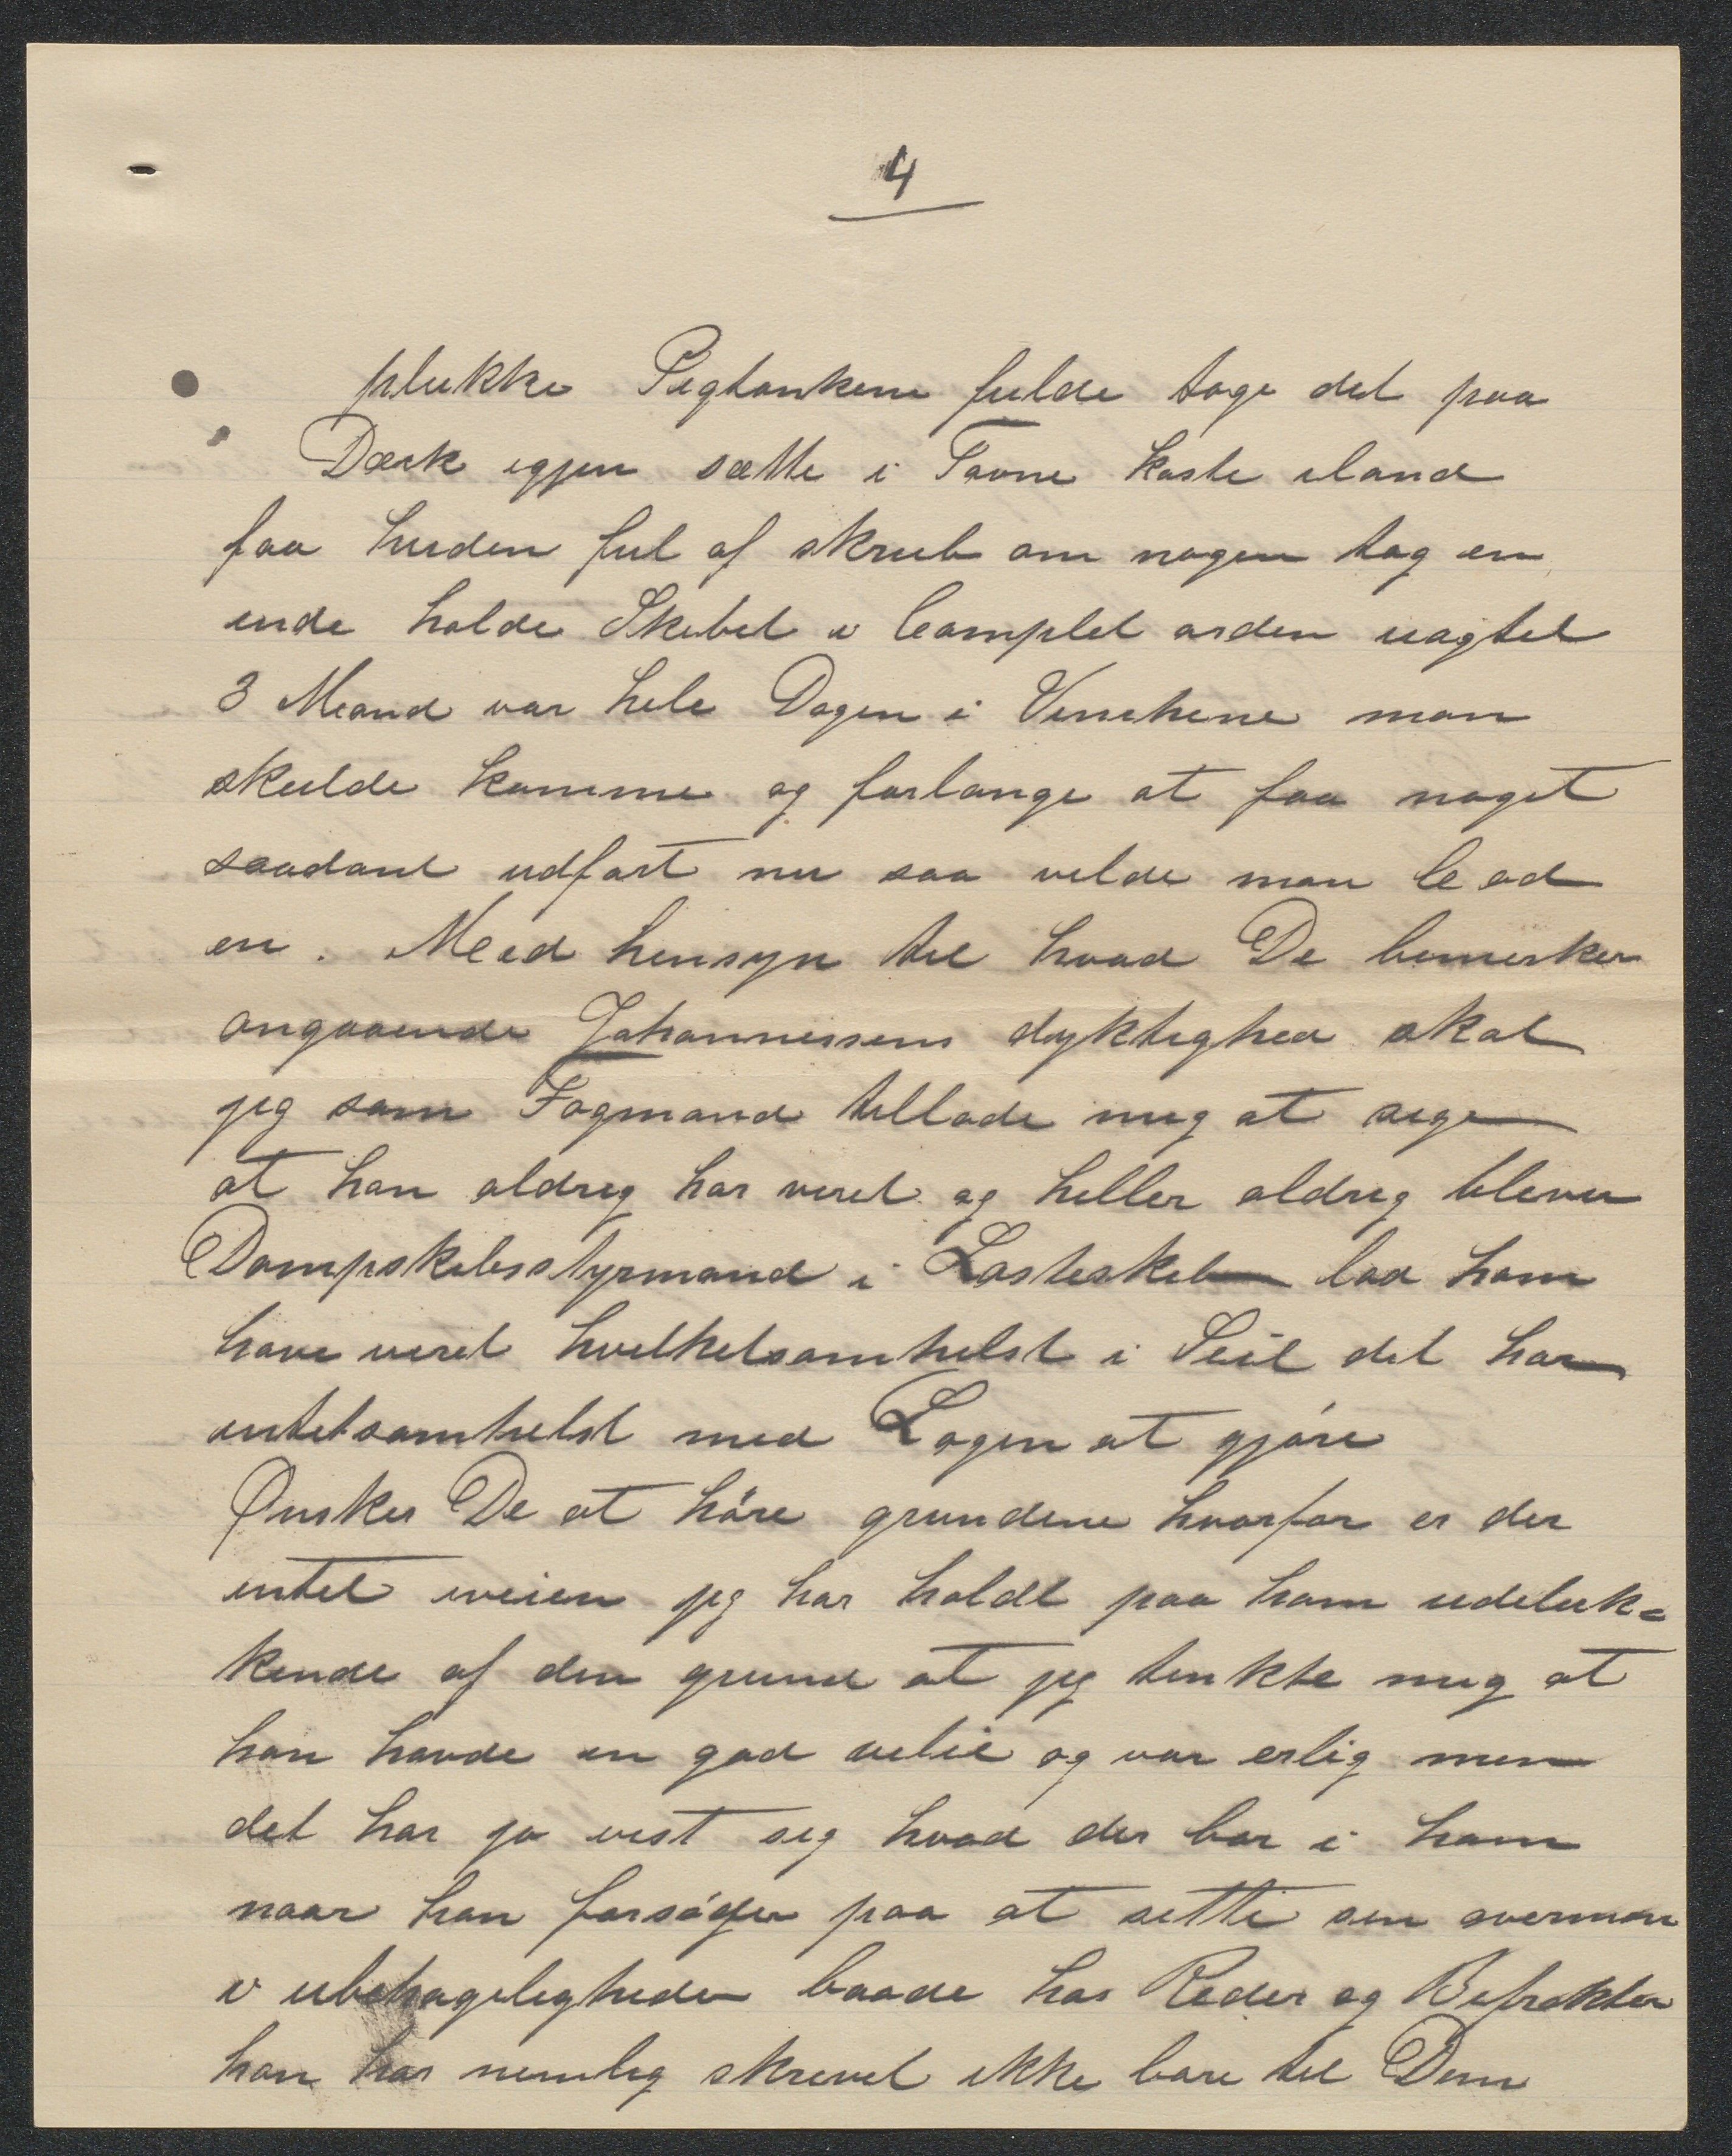 4
plukke Pigtankene fulde tage det paa
Dæck igjen sætte i Tovne kaste iland
faa huden ful af skrub om nogen tog en
ende holde Skibet i Complet orden uagtet
3 Mand var hele Dagen i Vinchene man
skulde komme og forlange at faa noget
saadant udført nu saa vilde man le ad
en. Med hensyn til hvad De bemerker
angaaende Johannessens dyktighed skal
jeg som Fagmand tillade mig at sige
at han aldrig har veret og heller aldrig bliver
Dampskibsstyrmand i Lasteskib lad ham
have veret hvilketsomhelst i Seil det har
intetsomhelst med Sagen at gjøre
Ønsker De at höre grundene hvorfor er der
intet iveien jeg har holdt paa ham udeluk=
kende af den grund at jeg tenkte mig at
han havde en god vilie og var erlig men
det har jo vist sig hvad der bor i ham
naar han forsöger paa at sette sin overman
i ubehageligheder baade hos Reder og Befrakter
han har nemlig skrevet ikke bare til Dem